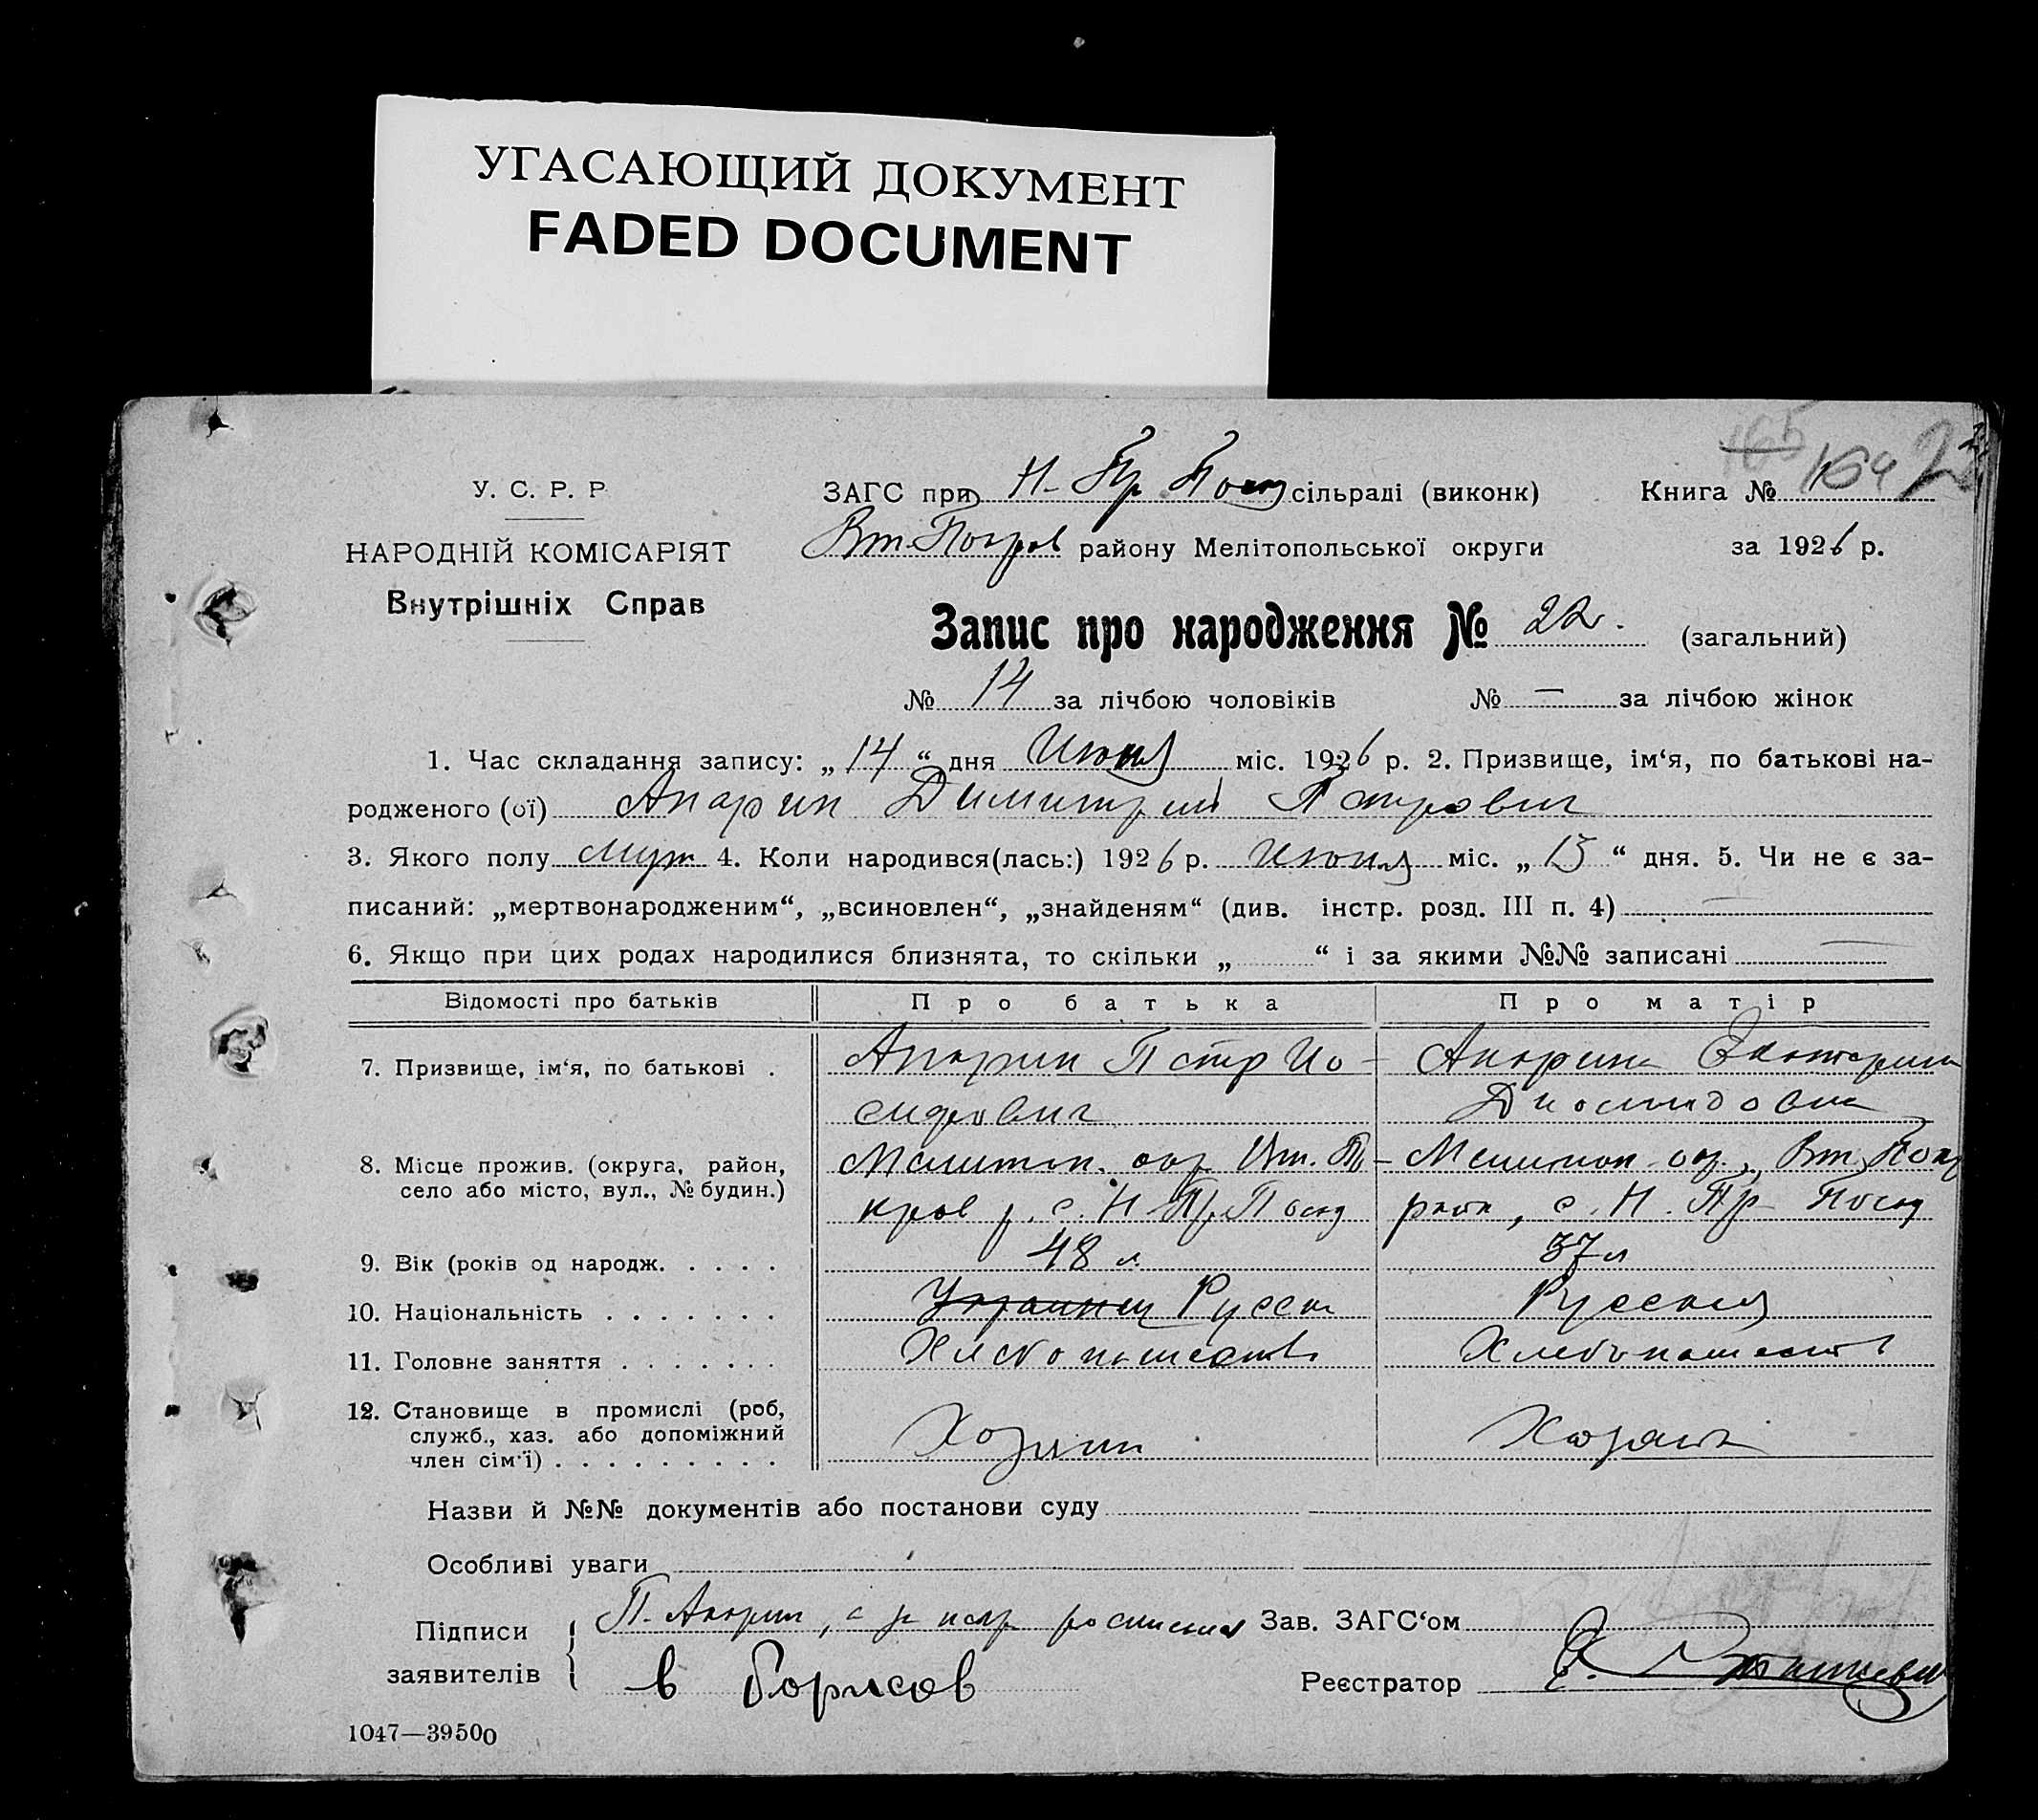 УГАСАЮЩИЙ ДОКУМЕНТ
FADED DOCUMENT
165
У. С. Р. Р
ЗАГС при Н- Пр Посад сільраді (виконк) Книга №
Вт-Покров району Мелітопольської округи за 1926 р.
НАРОДНІЙ КОМІСАРІЯТ
Внутрішніх Справ
Запис про народження № 22. (загальний)
№ 14 за лічбою чоловіків № — за лічбою жінок
1. Час складання запису: „14“ дня Июня міс. 1926 р. 2. Призвище, ім‘я, по батькові на-
родженого (ої) Апарин Димитрий Петрович
3. Якого полу Муж 4. Коли народився(лась:) 1926 р. Июня міс. „13“ дня. 5. Чи не є за-
писаний: „мертвонародженим“, „всиновлен“, „знайденям“ (див. інстр. розд. III п. 4) —
6. Якщо при цих родах народилися близнята, то скільки „ “ і за якими №№ записані —
Відомості про батьків Про батька Про матір
7. Призвище, ім‘я, по батькові . Апарин Петр Ио- Апарина Екатерина
сифович Диомидовна
8. Місце прожив. (округа, район, Мелитоп. окр Вт. По- Мелитоп окр., Вт. Покр
село або місто, вул., № будин.) кров р. с. Н Пр. Посад раиа, с. Н. Пр- Посад
9. Вік (років од народж. . . . . 48 л. 37 л
10. Національність . . . . . . . Украинец Русск Русская
11. Головне заняття . . . . . . . Хлебопашество Хлебопашество
12. Становище в промислі (роб,
служб., хаз. або допоміжний Хозяин Хозяика
член сім‘ї) . . . . . . . . .
Назви й №№ документів або постанови суду
Особливі уваги
Підписи П. Апарин, Зав. ЗАГС‘ом
заявителів в Борисов Реєстратор
1047—39500